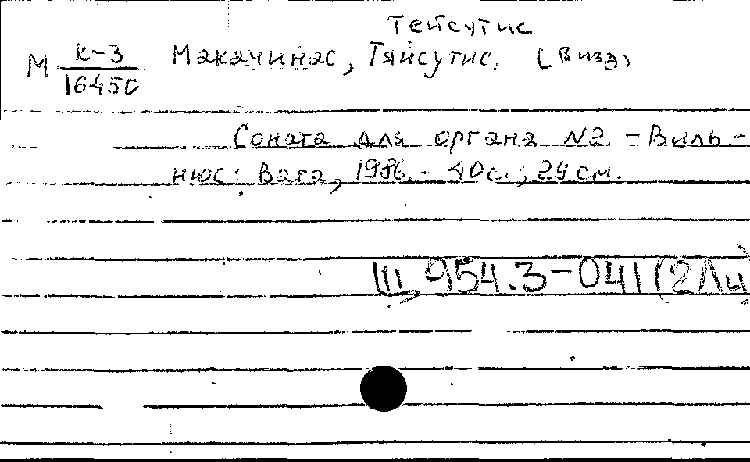 Тейсутис
М К-3 Макачинас, Тяйсутис. (Виза)
16450
Соната для органа №2. - Виль-
нюс: Вага, 1986. - 40с.; 24 см.
Щ 954.3-041(2Ли)